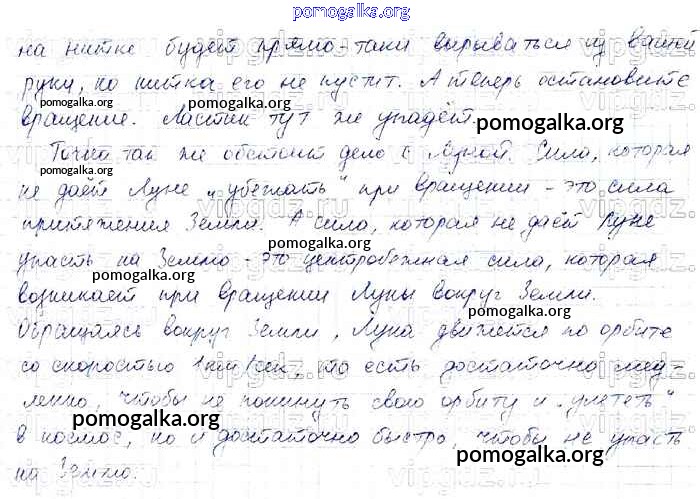 pomogalka.org
на нитке будет прямо-таки вырываться из вашей
руки, но нитка его не пустит. А теперь остановите
pomogalka.org
pomogalka.org
вращение. Ластик тут же упадёт.
pomogalka.org
Точно так же обстоит дело с Луной. Сила, которая
не даёт Луне „убежать" при вращении - это сила
притяжения Земли. А сила, которая не даёт Луне
pomogalka.org
упасть на Землю - это центробежная сила, которая
pomogalka.org
возникает при вращении Луны вокруг Земли.
Обращаясь вокруг Земли, Луна движется по орбите
со скоростью 1 км/сек, то есть достаточно мед-
ленно, чтобы не покинуть свою орбиту и „улететь"
pomogalka.org
в космос, но и достаточно быстро, чтобы не упасть
pomogalka.org
на Землю.